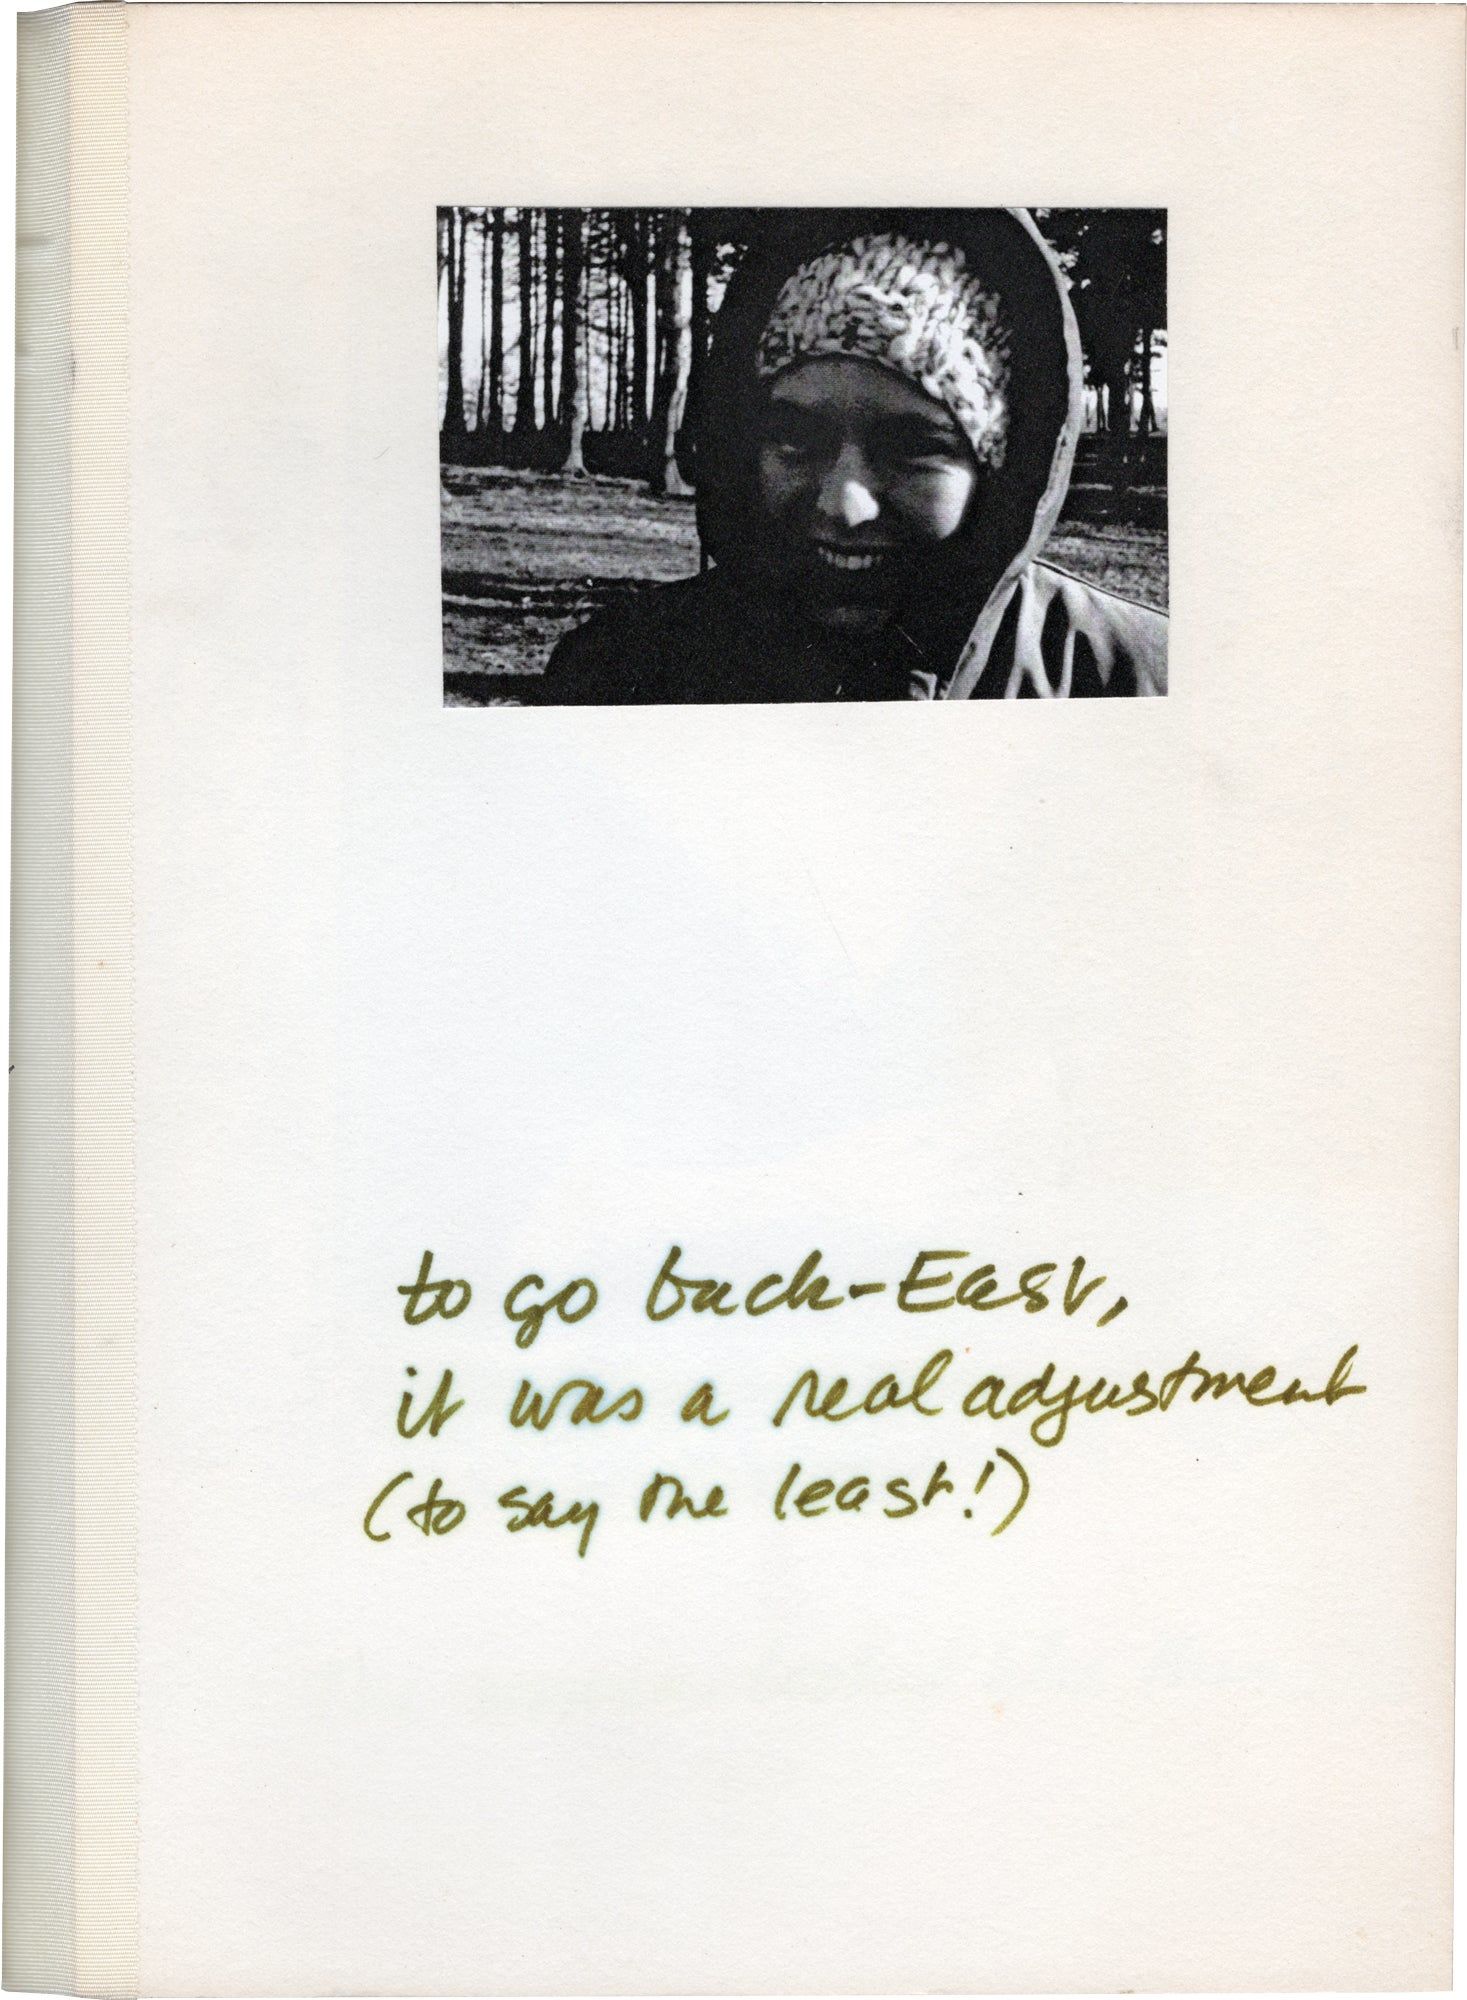 to go back-East,
it was a real adjustment
(to say the least!)